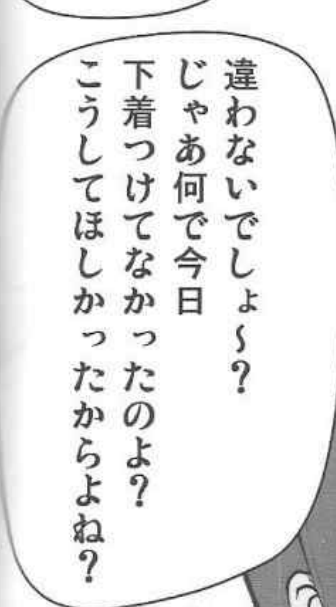 違わないでしょ～？
じゃあ何で今日
下着つけてなかったのよ？
こうしてほしかったからよね？